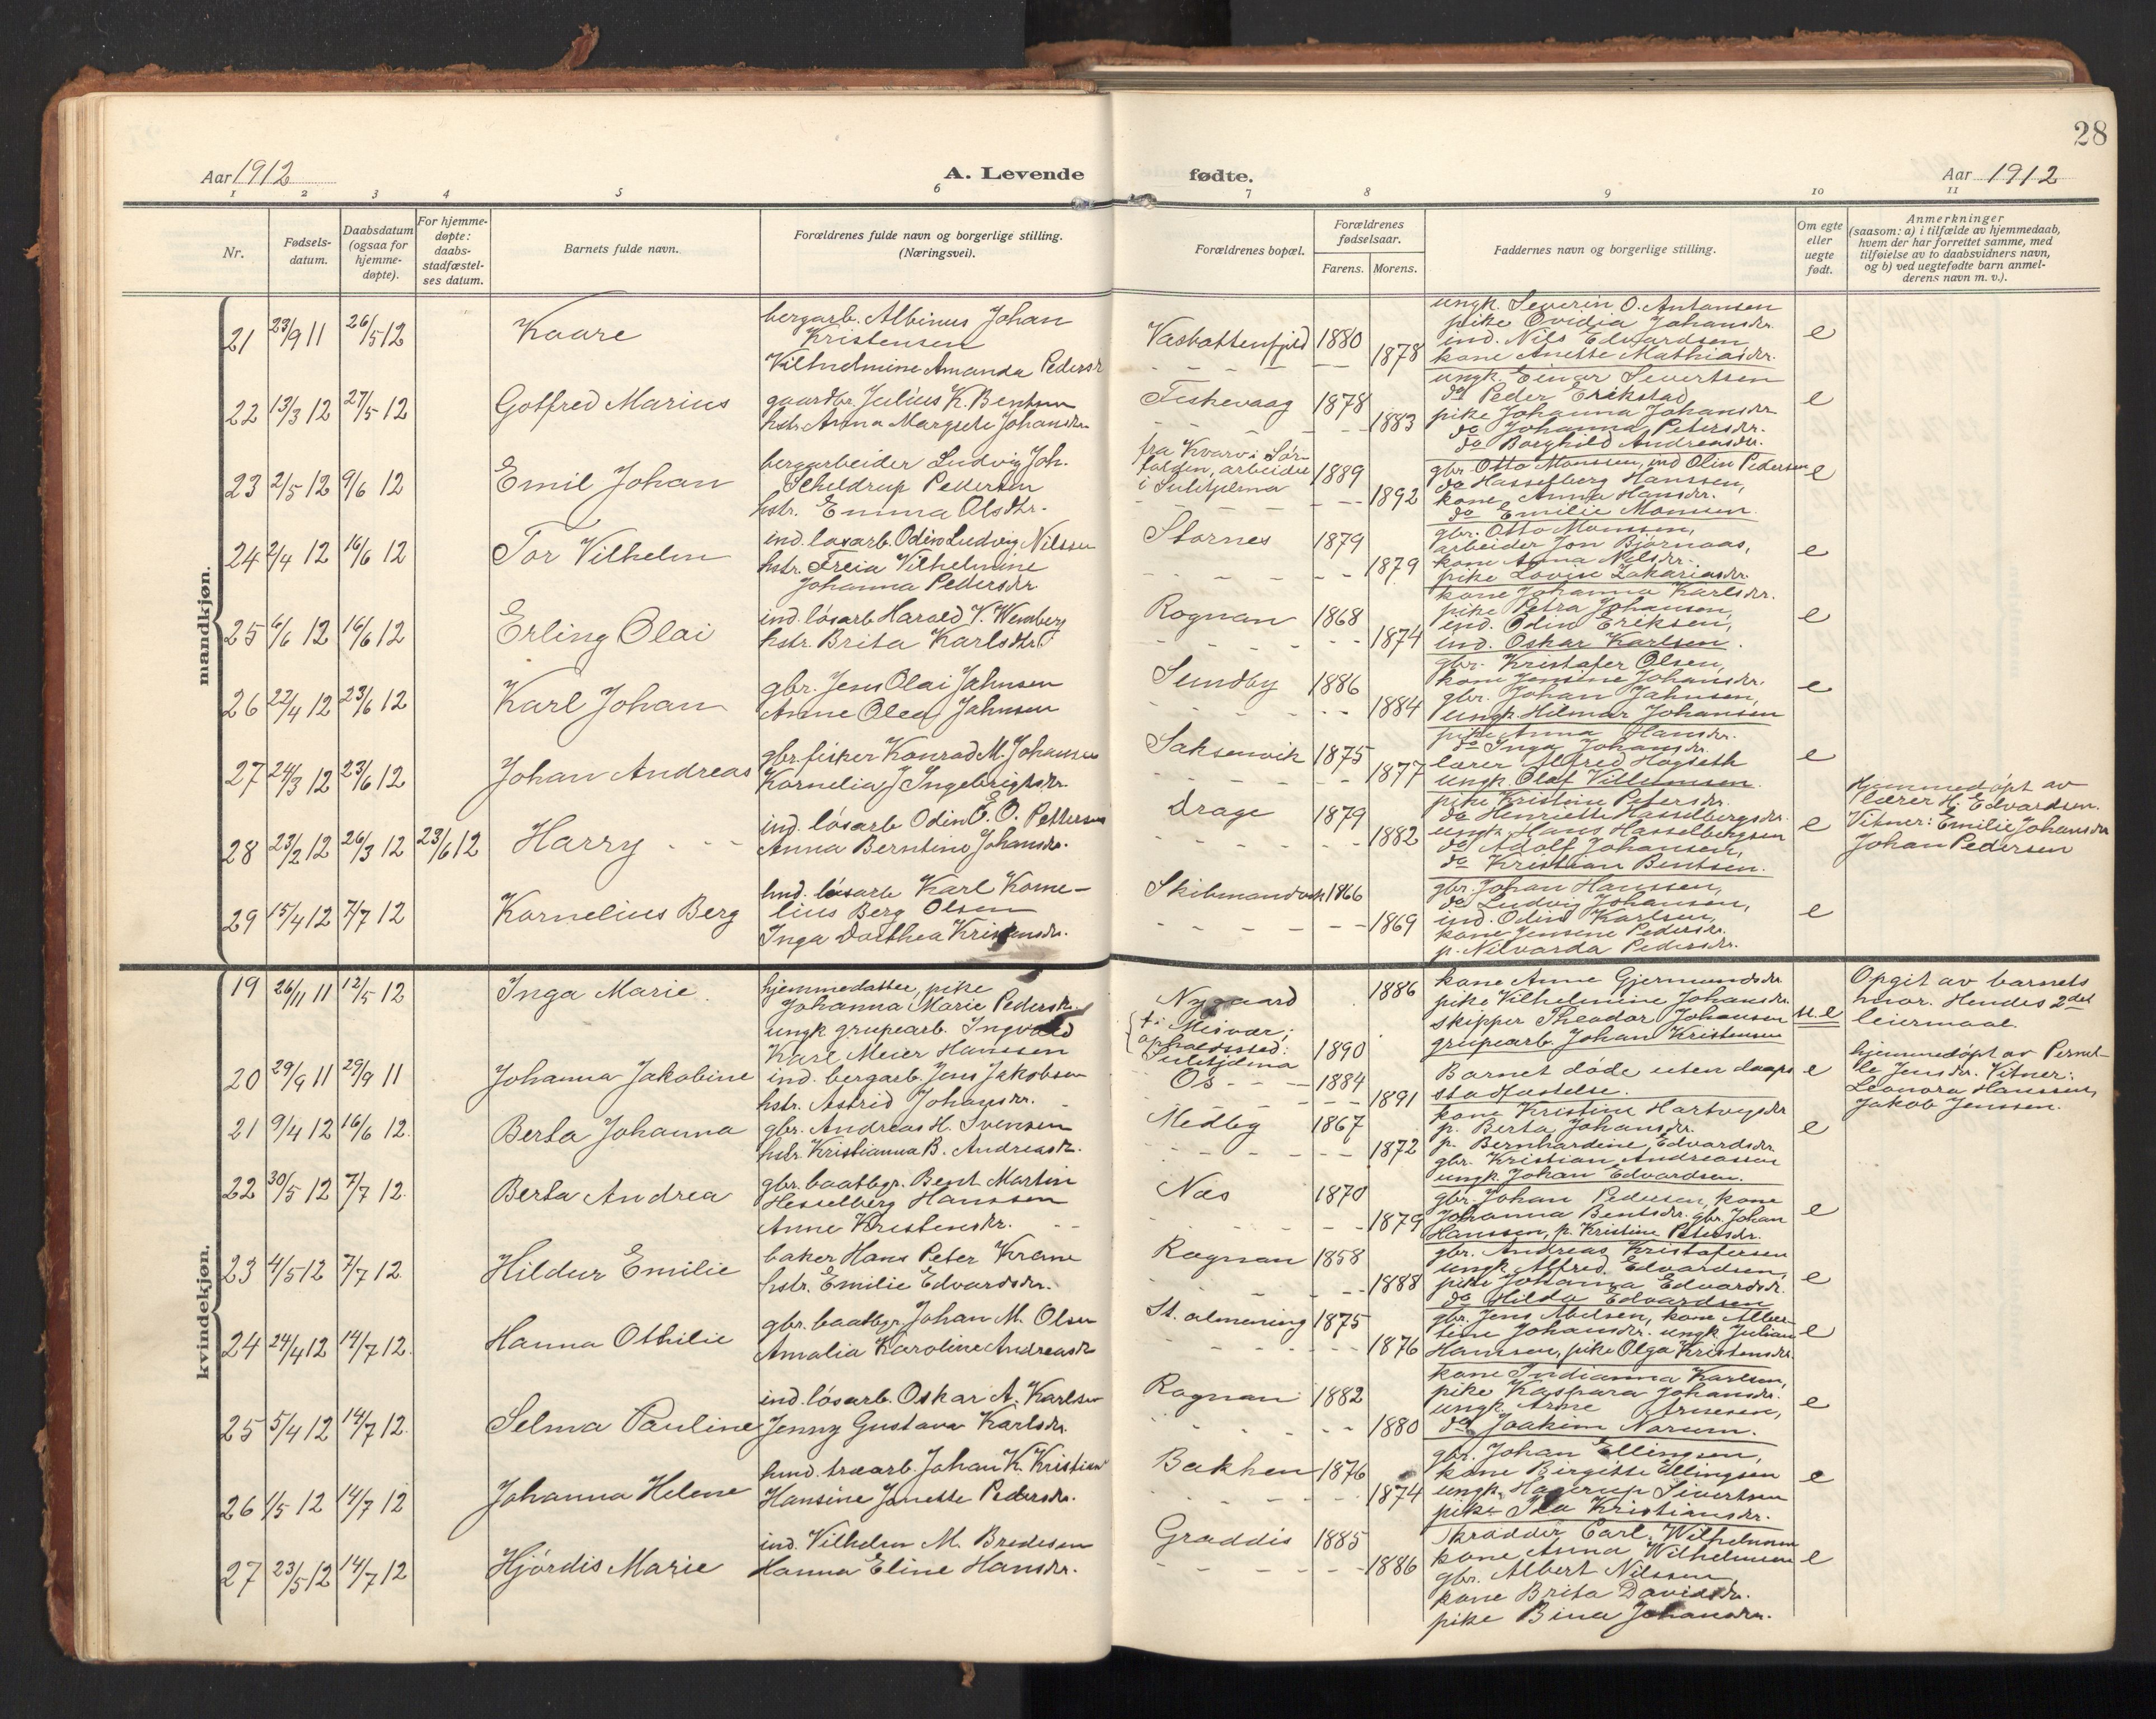 28
Aar 1912
A. Levende fødte.
Aar 1912
1 2 3 4 5 6 7 8 9 10 11
Nr.
Fødsels-
datum.
Daabsdatum
(ogsaa for
hjemme-
døpte).
For hjemme-
døpte:
daabs-
stadfæstel-
ses datum.
Barnets fulde navn.
Forældrenes fulde navn og borgerlige stilling.
(Næringsvei).
Forældrenes bopæl.
Forældrenes
fødselsaar.
Farens. Morens.
Faddernes navn og borgerlige stilling.
Om egte
eller
uegte
født.
Anmerkninger
(saasom: a) i tilfælde av hjemmedaab,
hvem der har forrettet samme, med
tilføielse av to daabsvidners navn,
og b) ved uegtefødte barn anmel-
derens navn m. v.).
mandkjøn.
21 23/9 11 26/5 12 Kaare
bergarb. Albinus Johan
Kristensen
Vilhelmine Amanda Pedersdr
Vasbottenfjeld 1880 1878
ungk. Severin O. Antonsen
pike Ovidia Johansdr.
ind. Nils Edvardsen
kone Anette Mathiasdr.
e
22 13/3 12 27/5 12 Gotfred Marius
gaardbr. Julius K. Bentsen
hstr. Anna Margrete Johansdr.
Fiskevaag 1878 1883
ungk. Einar Severtsen
do Peder Erikstad
pike Johanna Johansdr
do Johanna Petersdr.
do Borghild Andreasdtr.
e
23 2/5 12 9/6 12 Emil Johan
bergarbeider Ludvig Joh.
Scheldrup Pedersen
hstr. Emma Olsdtr.
fra Kvarv i Sør-
folden, arbeider
i Sulitjelma 1889 1892
gbr. Otto Monssen, ind Olin Pedersen
do Hasselberg Hanssen,
kone Anna Hansdr.
do Emilie Monsen.
e
24 2/4 12 16/6 12 Tor Vilhelm
ind. løsarb. Odin Ludvig Nilssen
hstr. Freia Vilhelmine
Johanna Pedersdr
Stornes 1879 1879
gbr. Otto Monssen,
arbeider Jon Bjørnaas,
kone Anna Nilsdr.
pike Lovise Zakariasdr.
e
25 6/6 12 16/6 12 Erling Olai
ind. løsarb Harald V. Wemberg
hstr. Brita Karlsdtr.
Rognan 1868 1874
kone Johanna Karlsdr.
pike Petra Johansen,
ind. Odin Eriksen,
ind. Oskar Karlsen.
e
26 22/4 12 23/6 12 Karl Johan
gbr. Jens Olai Jahnsen
Anne Olea Jahnsen
Sundby 1886 1884
gbr. Kristofer Olsen,
kone Jensine Johansdr.
gbr. Johan Jahnsen,
ungk. Hilmar Johansen
e
27 24/3 12 23/6 12 Johan Andreas
gbr. fisker Konrad M. Johansen
Kornelia J Ingebrigtsdr.
Saksenvik 1875 1877
pike Anna Hansdr.
do Inga Johansdr.
lærer Alfred Hogseth
ungk. Olaf Villumsen.
e
28 23/2 12 26/3 12 23/6 12 Harry
ind. løsarb Odin E. O. Pettersen
Anna Berntine Johansdr.
Drage 1879 1882
pike Kristine Petersdr.
do Henriette Hasselbergsdr.
ungk. Hans Hasselbergsen
do Adolf Johansen,
do Kristian Bentsen.
e
Hjemmedøpt av
lærer H. Edvardsen.
Vitner: Emilie Johansdr
Johan Pedersen
29 15/4 12 7/7 12 Kornelius Berg
hmd. løsarb Karl Korne-
lius Berg Olsen
Inga Dorthea Kristensdr.
Skibmandvik 1866 1869
gbr. Johan Hanssen,
do Ludvig Johansen,
ind. Odin Karlsen,
kone Jensine Pedersdr.
p. Nilvarda Pedersdr.
e
kvindekjøn.
19 26/11 11 12/5 12 Inga Marie.
hjemmedatter, pike
Johanna Marie Pedersdr.
ungk. grupearb. Ingvald
Karl Meier Hanssen
Nygaard
fr. Misvær;
opholdssted:
Sulitjelma 1890 1886
kone Anne Gjermundsdr
pike Vilhelmine Johansdr.
skipper Theodor Johansen
grupearb. Johan Kristensen
u.e
Opgit av barnets
mor. Hendes 2det
leiermaal.
20 29/9 11 29/9 11 Johanna Jakobine
ind. bergarb. Jens Jakobsen
hstr. Astrid Johansdr.
Os 1884 1891
Barnet døde uten daaps
stadfæstelse.
e
hjemmedøpt av Pernil-
le Jensdr. Vitner:
Leonora Hanssen,
Jakob Jenssen.
21 9/4 12 16/6 12. Berta Johanna
gbr. Andreas H. Svensen
hstr. Kristianna B. Andreasdr.
Medby 1867 1872
kone Kristine Hartvigsdr
p. Berta Johansdr.
p. Bernhardine Edvardsdr
gbr. Kristian Andreassen
ungk. Johan Edvardsen.
e
22 30/5 12 7/7 12. Berta Andrea
gbr. baatbgr. Bent Martin
Hesselberg Hanssen
Anne Kristensdr.
Næs 1870 1879
gbr. Johan Pedersen, kone
Johanna Bentsdr. gbr. Johan
Hanssen, p. Kristine Petersdr.
e
23 4/5 12 7/7 12. Hildur Emilie
baker Hans Peter Krane
hstr. Emilie Edvardsdr.
Rognan 1858 1888
gbr. Andreas Kristofersen
ungk. Alfred Edvardsen,
pike Johanna Edvardsdr.
do Hilda Edvardsen
e
24 24/4 12 14/7 12. Hanna Othilie
gbr. baatbgr. Johan M. Olsen
Amalia Karoline Andreasdr
St. almening 1875 1876
gbr. Jens Abelsen, kone Alber-
tine Johansdr. ungk Julian
Hanssen, pike Olga Kristensdr.
e
25 5/4 12 14/7 12. Selma Pauline
ind. løsarb. Oskar A. Karlsen
Jenny Gustava Karlsdr.
Rognan 1882 1880
kone Indianna Karlsen,
pike Kaspara Johansdr.
ungk. Arne Arnesen,
do Joakim Norum.
e
26 1/5 12 14/7 12 Johanna Helene
hmd. træarb. Johan K. Kristian
Hansine Janette Pedersdr.
Bakken 1876 1874
gbr. Johan Ellingsen,
kone Birgitte Ellingsen
ungk. Hagerup Sivertsen
pike Ida Kristiansdr.
e
27 23/5 12 14/7 12 Hjørdis Marie
ind. Vilhelm M. Bredesen
Hanna Eline Hansdr.
Graddis 1885 1886
skrædder Carl Wilhelmsen
kone Anna Wilhelmsen
gbr. Albert Nilssen
kone Brita Davidsdr.
pike Bina Johansdr.
e